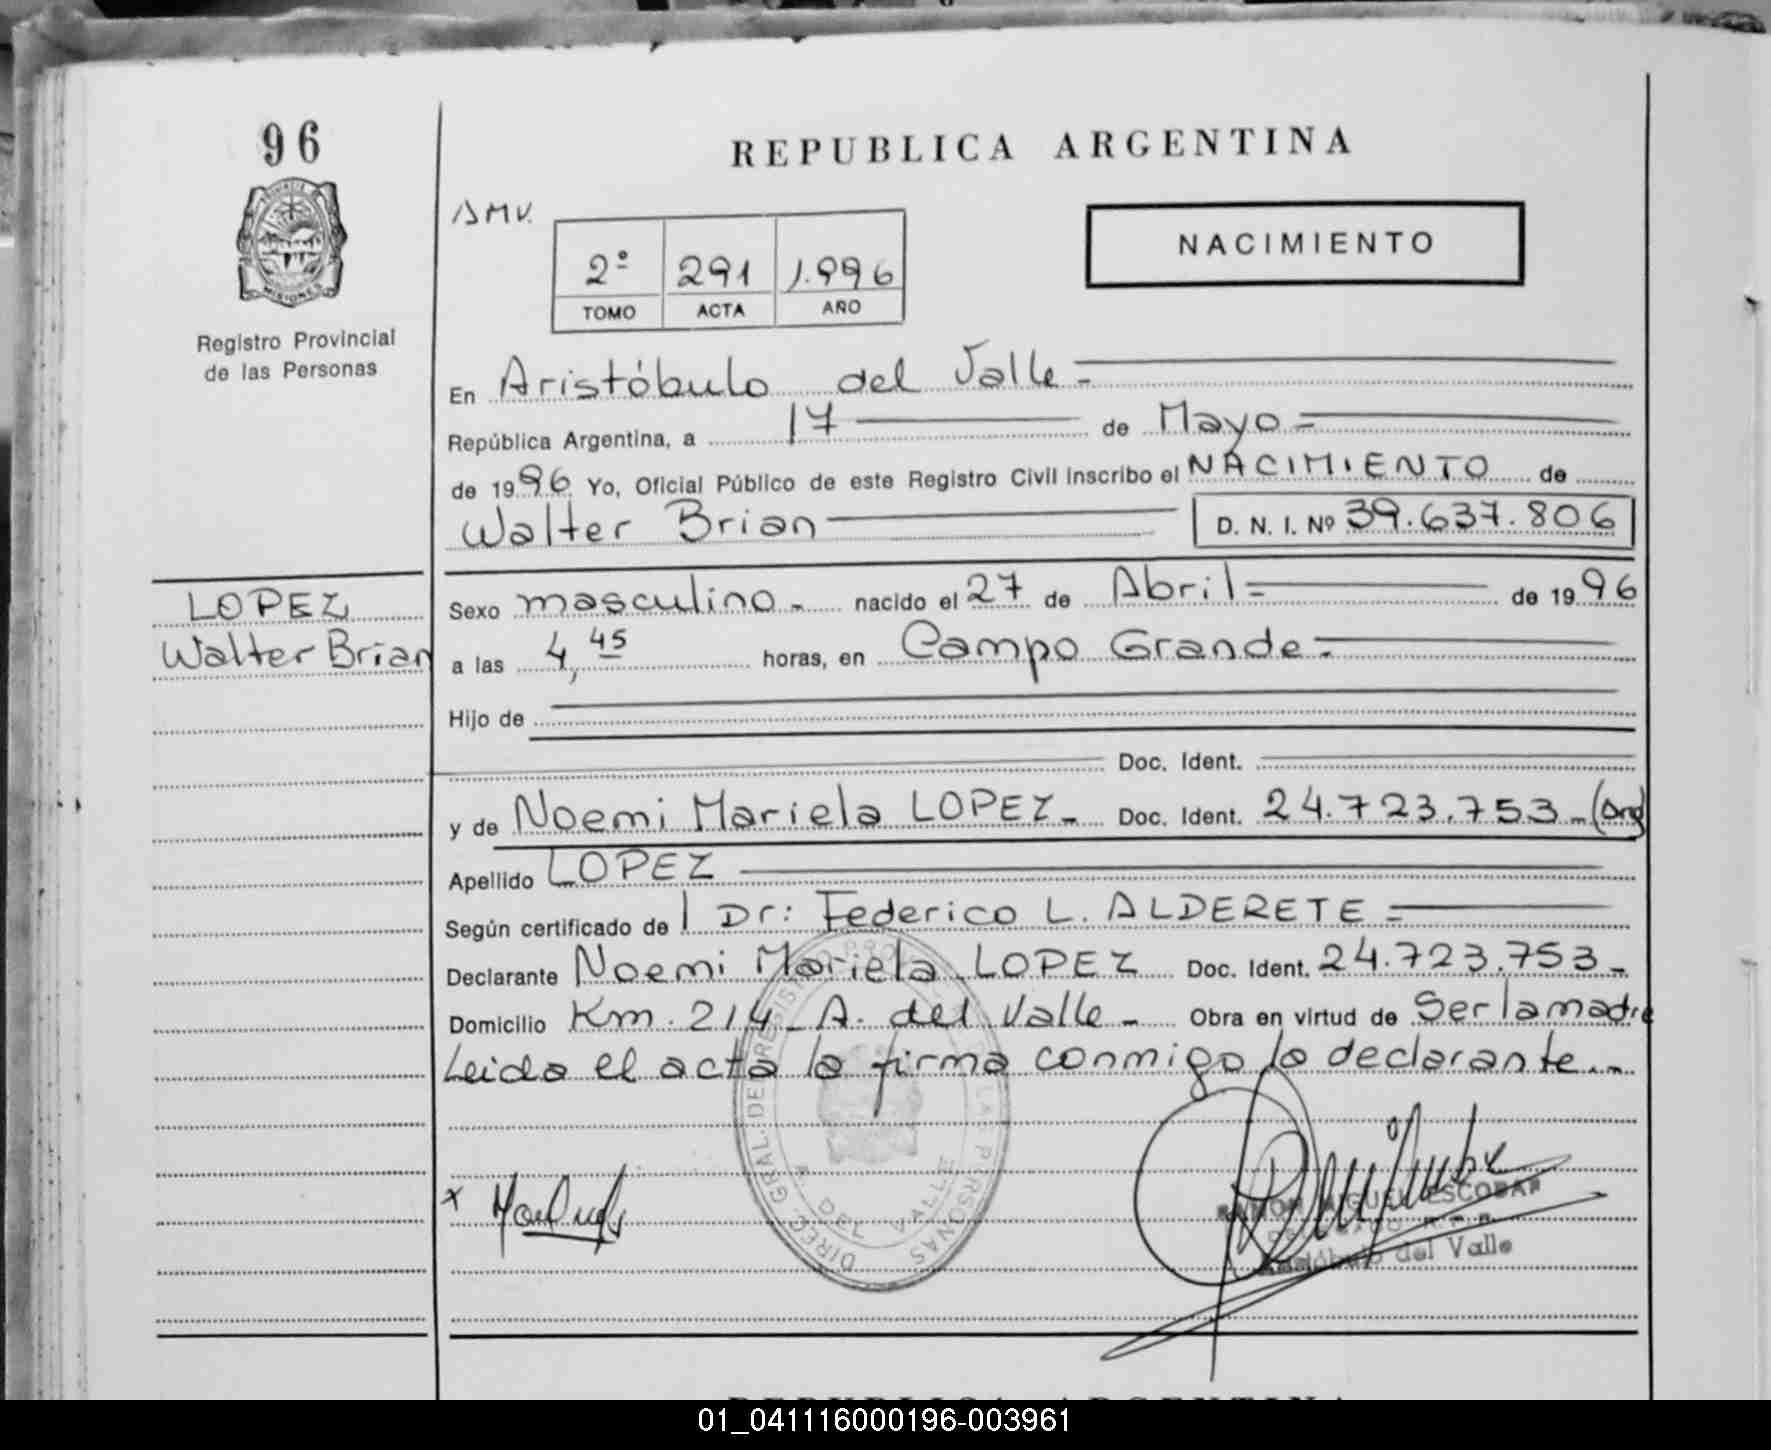 96
REPUBLICA ARGENTINA
AMV.
NACIMIENTO
2º 291 1.996
TOMO ACTA AÑO
MISIONES
Registro Provincial
de las Personas
En Aristóbulo del Valle-
República Argentina, a 17 de Mayo=
de 1996 Yo, Oficial Público de este Registro Civil inscribo el NACIMIENTO de
Walter Brian D. N. I. Nº 39.637.806
LOPEZ
Walter Brian
Sexo masculino- nacido el 27 de Abril= de 1996
a las 4,45 horas, en Campo Grande.-
Hijo de
Doc. Ident.
y de Noemi Mariela LOPEZ- Doc. Ident. 24.723.753-(Arg)
Apellido LOPEZ
Según certificado de Dr: Federico L. ALDERETE=
Declarante Noemi Mariela LOPEZ Doc. Ident. 24.723.753-
Domicilio Km. 214- A. del Valle- Obra en virtud de Ser la madre
Leida el acta la firma conmigo la declarante.-
DIREC. GRAL. DEL REGISTRO PROV. DE LAS PERSONAS
A. DEL VALLE
x
RAMON MIGUEL ESCOBAR
Aristóbulo del Valle
REPUBLICA ARGENTINA
01_041116000196-003961